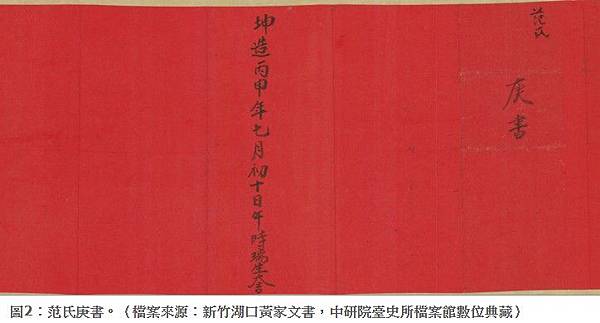 范氏
庚書
坤造丙申年七月初十日午時瑞生大吉
圖2：范氏庚書。（檔案來源：新竹湖口黃家文書，中研院臺史所檔案館數位典藏）